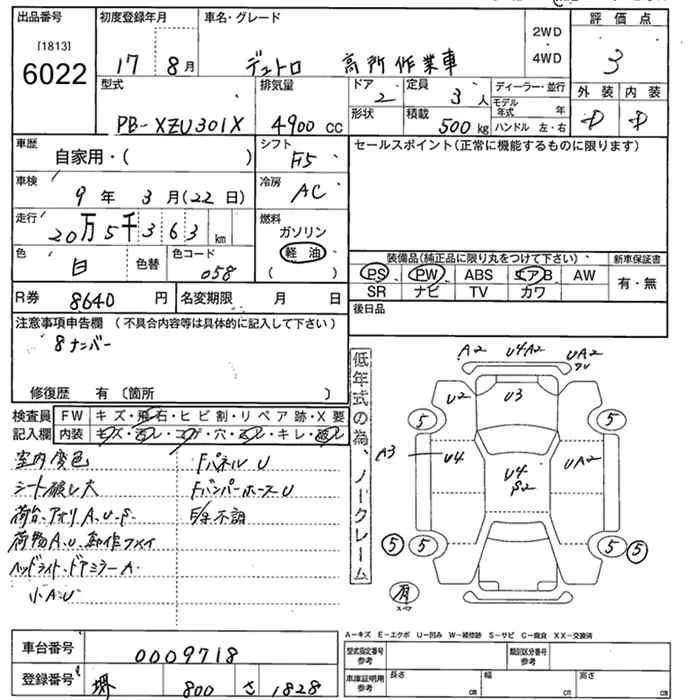 出品番号
[1813]
6022
初度登録年月
17 8月
車名・グレード
デュトロ 高所作業車
2WD
4WD
評価点
3
型式
PB-XZU301X
排気量
4900 cc
ドア
2
形状
定員
3人
積載
500kg
ディーラー・並行
モデル年式 年
ハンドル 左・右
外装 内装
D D
車歴
自家用・( )
シフト
F5
セールスポイント(正常に機能するものに限ります)
車検
9年 3月(22日)
冷房
AC
走行
20万5千363km
燃料
ガソリン
軽油
( )
色
白
色替
色コード
058
装備品(純正品に限り丸をつけて下さい)
新車保証書
PS PW ABS エアB AW
SR ナビ TV カワ
有・無
R券 8640円
名変期限 月 日
後日品
注意事項申告欄(不具合内容等は具体的に記入して下さい)
8ナンバー
修復歴 有〔箇所 〕
検査員記入欄
FW キズ・飛石・ヒビ割・リペア跡・X要
内装 キズ・汚レ・コゲ・穴・・キレ・破レ
室内変色
シート破レ大
荷台、アオリA.U.S.
荷物A.U.
ヘッドライト、ドアミラーA
小A.U
FパネルU
FバンパーホースU
不調
低年式の為、ノークレーム
A2 U4A2 UA2
U2 U3
5 5
A3 U4 U4 S2 UA2
5 5 5 5
有
スペア
A-キズ E-エクボ U-凹み W-補修跡 S-サビ C-腐食 XX-交換済
車台番号
0009718
登録番号
堺 800 さ 1828
型式指定番号
参考
類別区分番号
参考
車庫証明用
参考
長さ cm
幅 cm
高さ cm